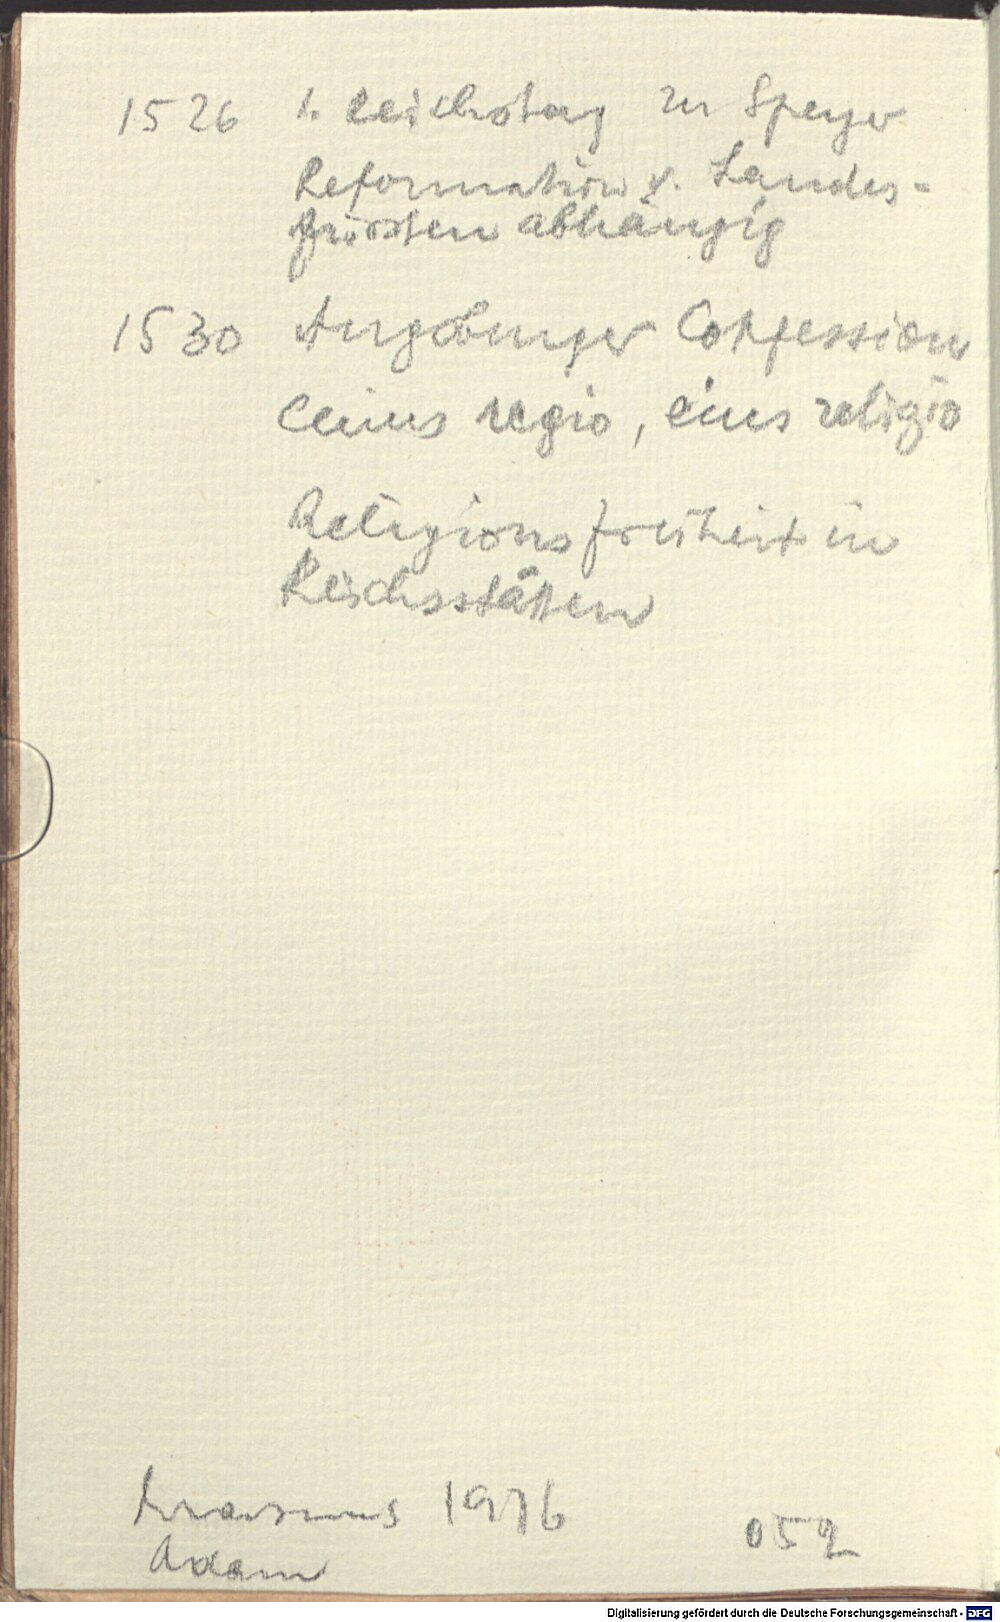 1526 1. Reichstag zu Speyer
Reformation v. Landes-
fürsten abhängig
1530 Augsburger Confession
Cuius regio, eius religio
Religionsfreiheit in
Reichsstätten
Erasmus 1976
Adam
052
Digitalisierung gefördert durch die Deutsche Forschungsgemeinschaft - DFG